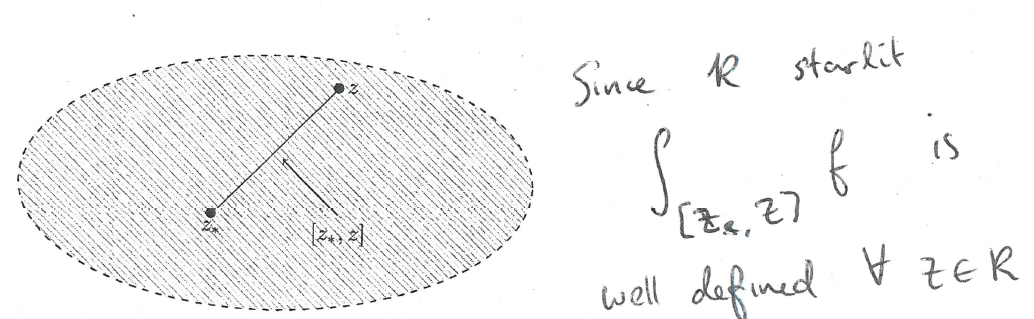 z
z_*
[z_*, z]
Since R starlit
∫_{[z_*, z]} f is
well defined ∀ z ∈ R